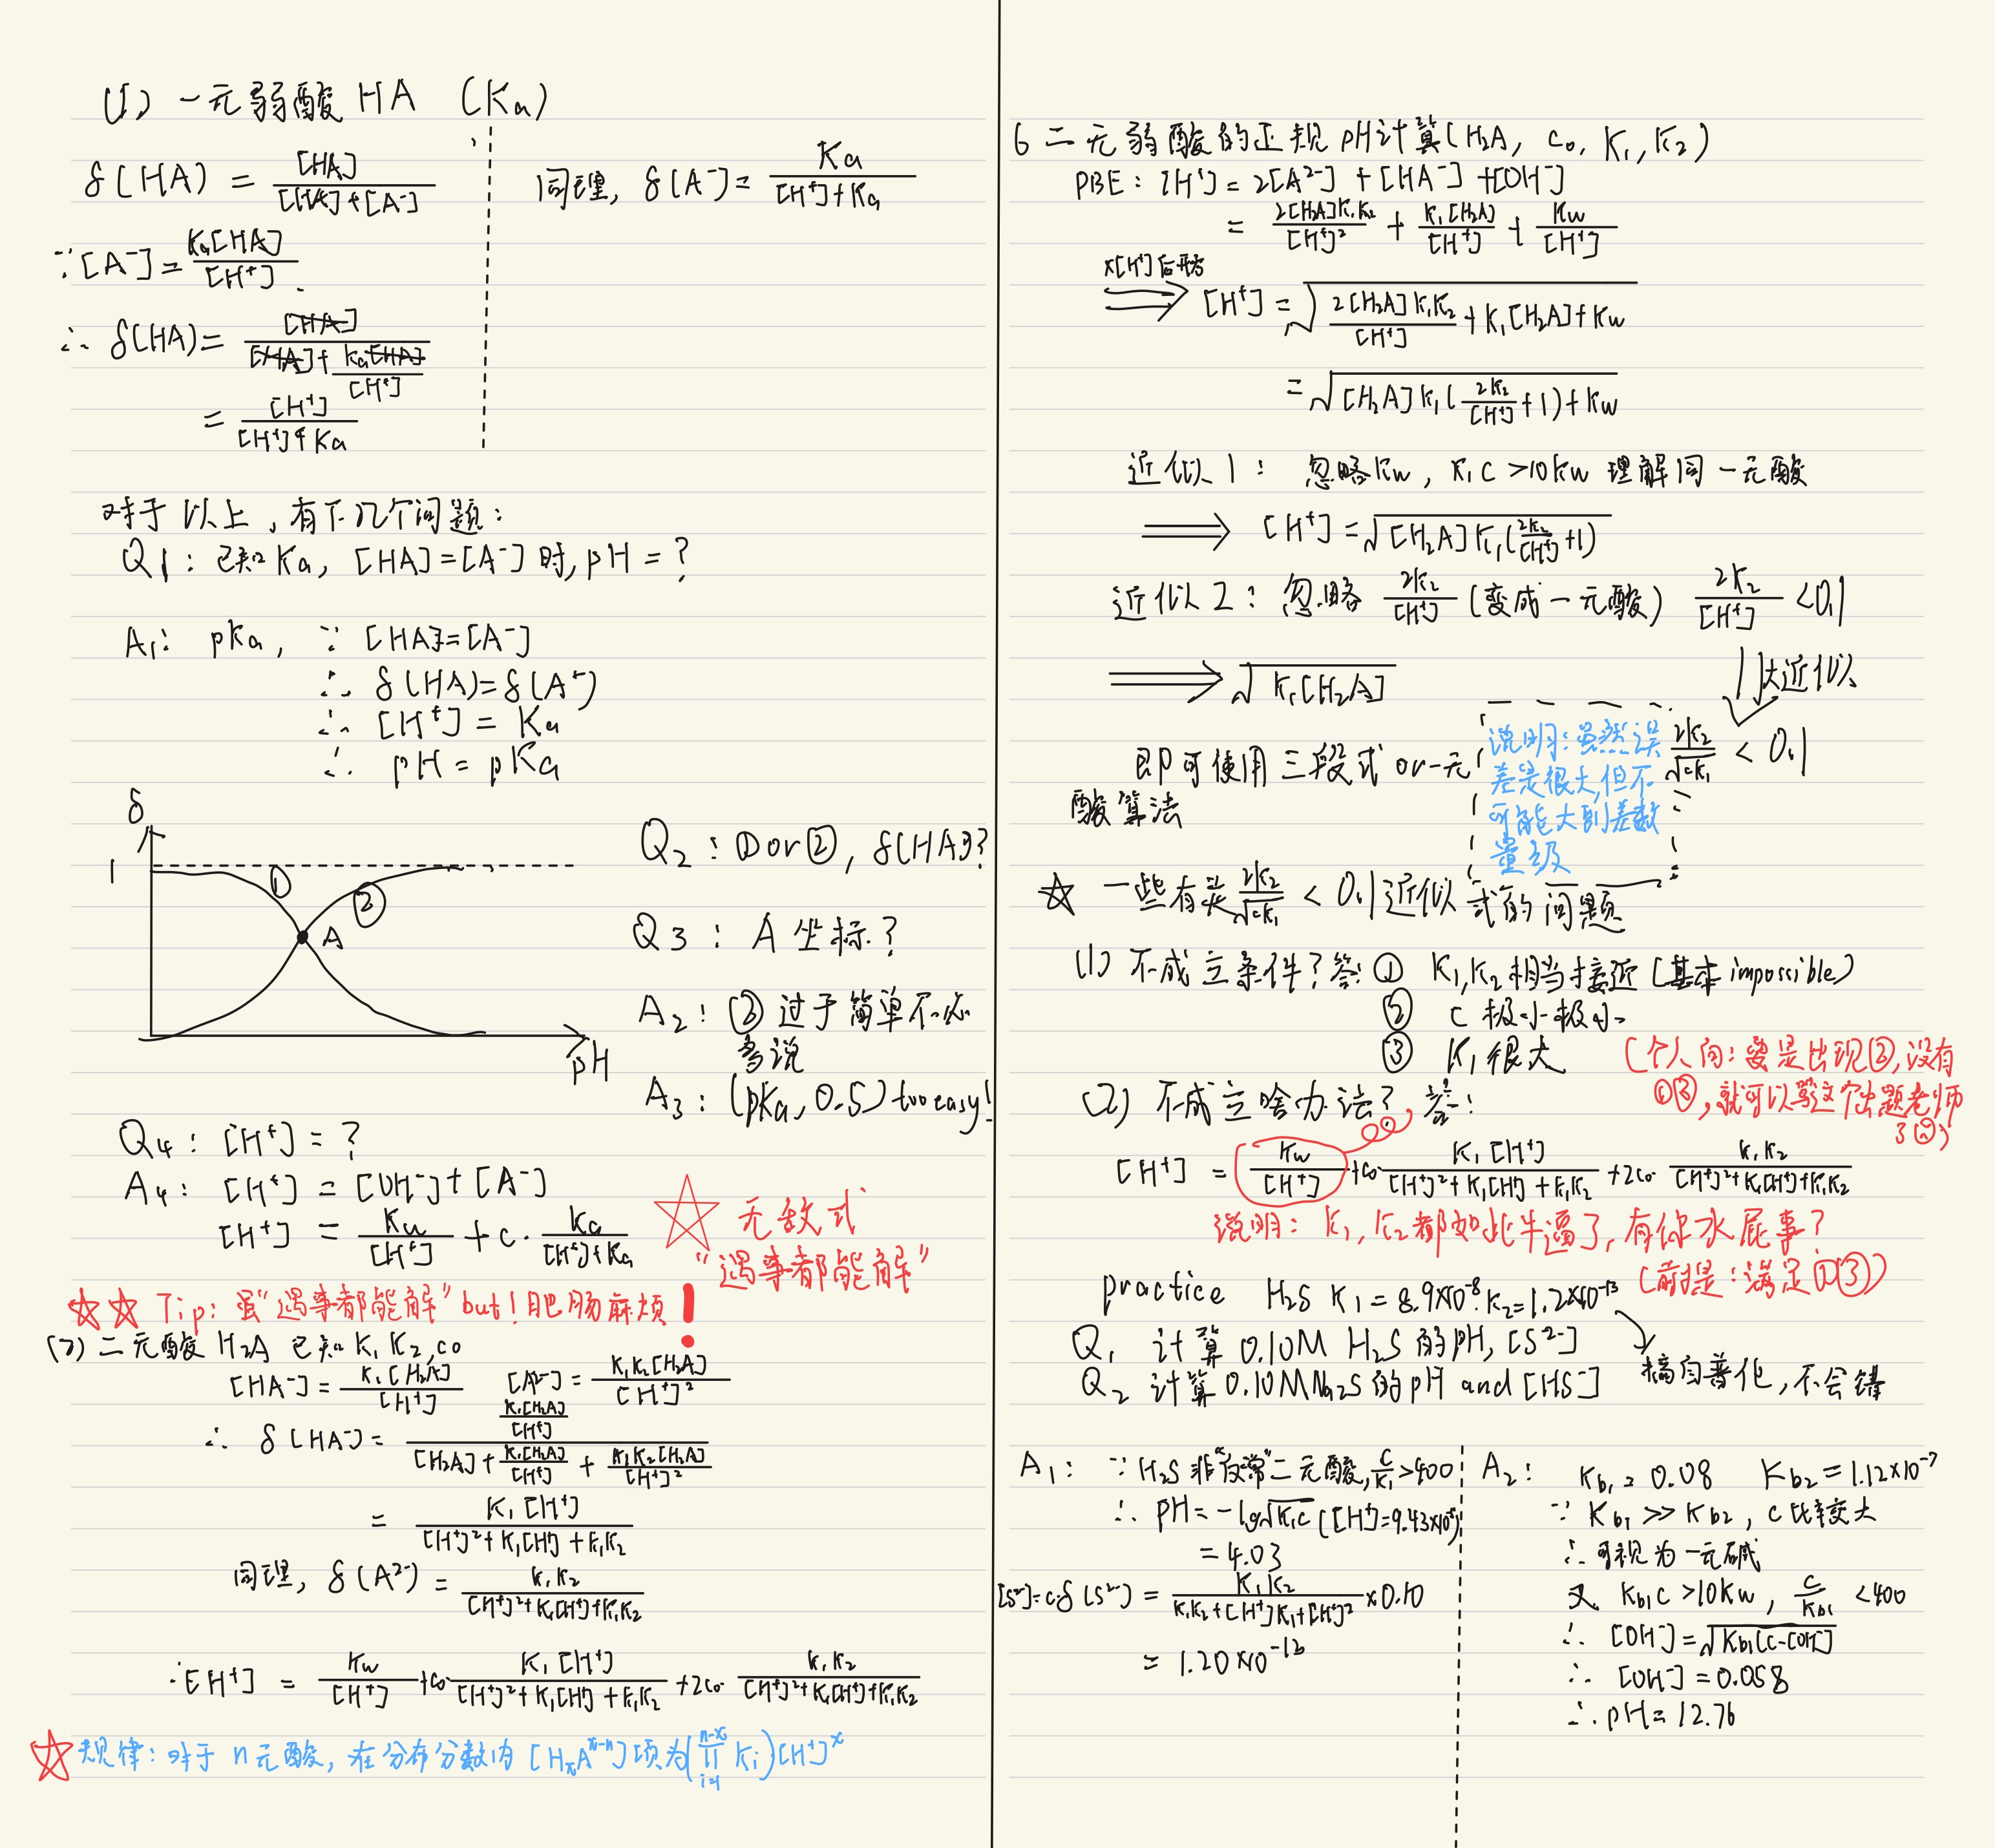 (1) 一元弱酸 HA (Ka)
δ(HA) = [HA]/([HA]+[A⁻])
同理, δ(A⁻) = Ka/([H⁺]+Ka)
∵ [A⁻] = Ka[HA]/[H⁺]
∴ δ(HA) = [HA]/([HA]+Ka[HA]/[H⁺])
= [H⁺]/([H⁺]+Ka)
对于以上,有下几个问题:
Q1: 已知Ka, [HA]=[A⁻]时, pH = ?
A1: pKa, ∵ [HA]=[A⁻]
∴ δ(HA)=δ(A⁻)
∴ [H⁺] = Ka
∴ pH = pKa
δ
1
①
②
A
pH
Q2: ① or ②, δ(HA)?
Q3: A 坐标?
A2: ② 过于简单不必
多说
A3: (pKa, 0.5) too easy!
Q4: [H⁺] = ?
A4: [H⁺] = [OH⁻] + [A⁻]
[H⁺] = Kw/[H⁺] + c·Ka/([H⁺]+Ka)
无敌式
"遇事都能解"
Tip: 虽"遇事都能解" but! 肥肠麻烦!
(2) 二元酸 H₂A 已知 K₁ K₂, c₀
[HA⁻] = K₁[H₂A]/[H⁺] [A²⁻] = K₁K₂[H₂A]/[H⁺]²
∴ δ[HA⁻] = (K₁[H₂A]/[H⁺])/([H₂A]+K₁[H₂A]/[H⁺]+K₁K₂[H₂A]/[H⁺]²)
= K₁[H⁺]/([H⁺]²+K₁[H⁺]+K₁K₂)
同理, δ(A²⁻) = K₁K₂/([H⁺]²+K₁[H⁺]+K₁K₂)
∴[H⁺] = Kw/[H⁺] + c₀·K₁[H⁺]/([H⁺]²+K₁[H⁺]+K₁K₂) + 2c₀·K₁K₂/([H⁺]²+K₁[H⁺]+K₁K₂)
规律: 对于 n 元酸, 在分布分数内 [HₓA^(x-n)] 项为 (∏_{i=1}^{n-x} Ki)[H⁺]^x
6 二元弱酸的正规 pH计算 (H₂A, c₀, K₁, K₂)
PBE: [H⁺] = 2[A²⁻] + [HA⁻] + [OH⁻]
= 2[H₂A]K₁K₂/[H⁺]² + K₁[H₂A]/[H⁺] + Kw/[H⁺]
×[H⁺]后开方
⟹ [H⁺] = √(2[H₂A]K₁K₂/[H⁺] + K₁[H₂A] + Kw)
= √([H₂A]K₁(2K₂/[H⁺]+1)+Kw)
近似 1: 忽略Kw, K₁c >10Kw 理解同一元酸
⟹ [H⁺] = √([H₂A]K₁(2K₂/[H⁺]+1))
近似 2: 忽略 2K₂/[H⁺] (变成一元酸) 2K₂/[H⁺] <0.1
⟹ √(K₁[H₂A])
大近似
2K₂/√(cK₁) < 0.1
即可使用三段式 or 一元
酸算法
说明: 虽然误
差是很大,但不
可能大到差数
量级
☆ 一些有关 2K₂/√(cK₁) < 0.1近似式的问题
(1) 不成立条件? 答: ① K₁,K₂相当接近 (基本impossible)
② c 极小极小
③ K₁很大
(个人向: 要是出现②,没有
①③,就可以骂这个出题老师
了)
(2) 不成立啥办法? 答:
[H⁺] = Kw/[H⁺] + c₀·K₁[H⁺]/([H⁺]²+K₁[H⁺]+K₁K₂) + 2c₀·K₁K₂/([H⁺]²+K₁[H⁺]+K₁K₂)
说明: K₁, K₂都如此牛逼了, 有你水屁事?
(前提: 满足①③)
practice H₂S K₁ = 8.9×10⁻⁸ K₂=1.2×10⁻¹³
Q₁ 计算 0.10M H₂S 的pH, [S²⁻]
Q₂ 计算 0.10M Na₂S 的pH and [HS⁻]
摘自普化, 不会错
A1: ∵ H₂S 非"反常"二元酸, c/K₁>400
∴ pH = -lg√(K₁c) ([H⁺]=9.43×10⁻⁵)
= 4.03
[S²⁻]=c·δ(S²⁻) = K₁K₂/(K₁K₂+[H⁺]K₁+[H⁺]²) × 0.10
= 1.20×10⁻¹³
A2: Kb₁ = 0.08 Kb₂ = 1.12×10⁻⁷
∵ Kb₁ ≫ Kb₂, c 比较大
∴ 可视为一元碱
又 Kb₁c >10Kw, c/Kb₁ <400
∴ [OH⁻]=√(Kb₁(c-[OH⁻]))
∴ [OH⁻] = 0.058
∴ pH = 12.76